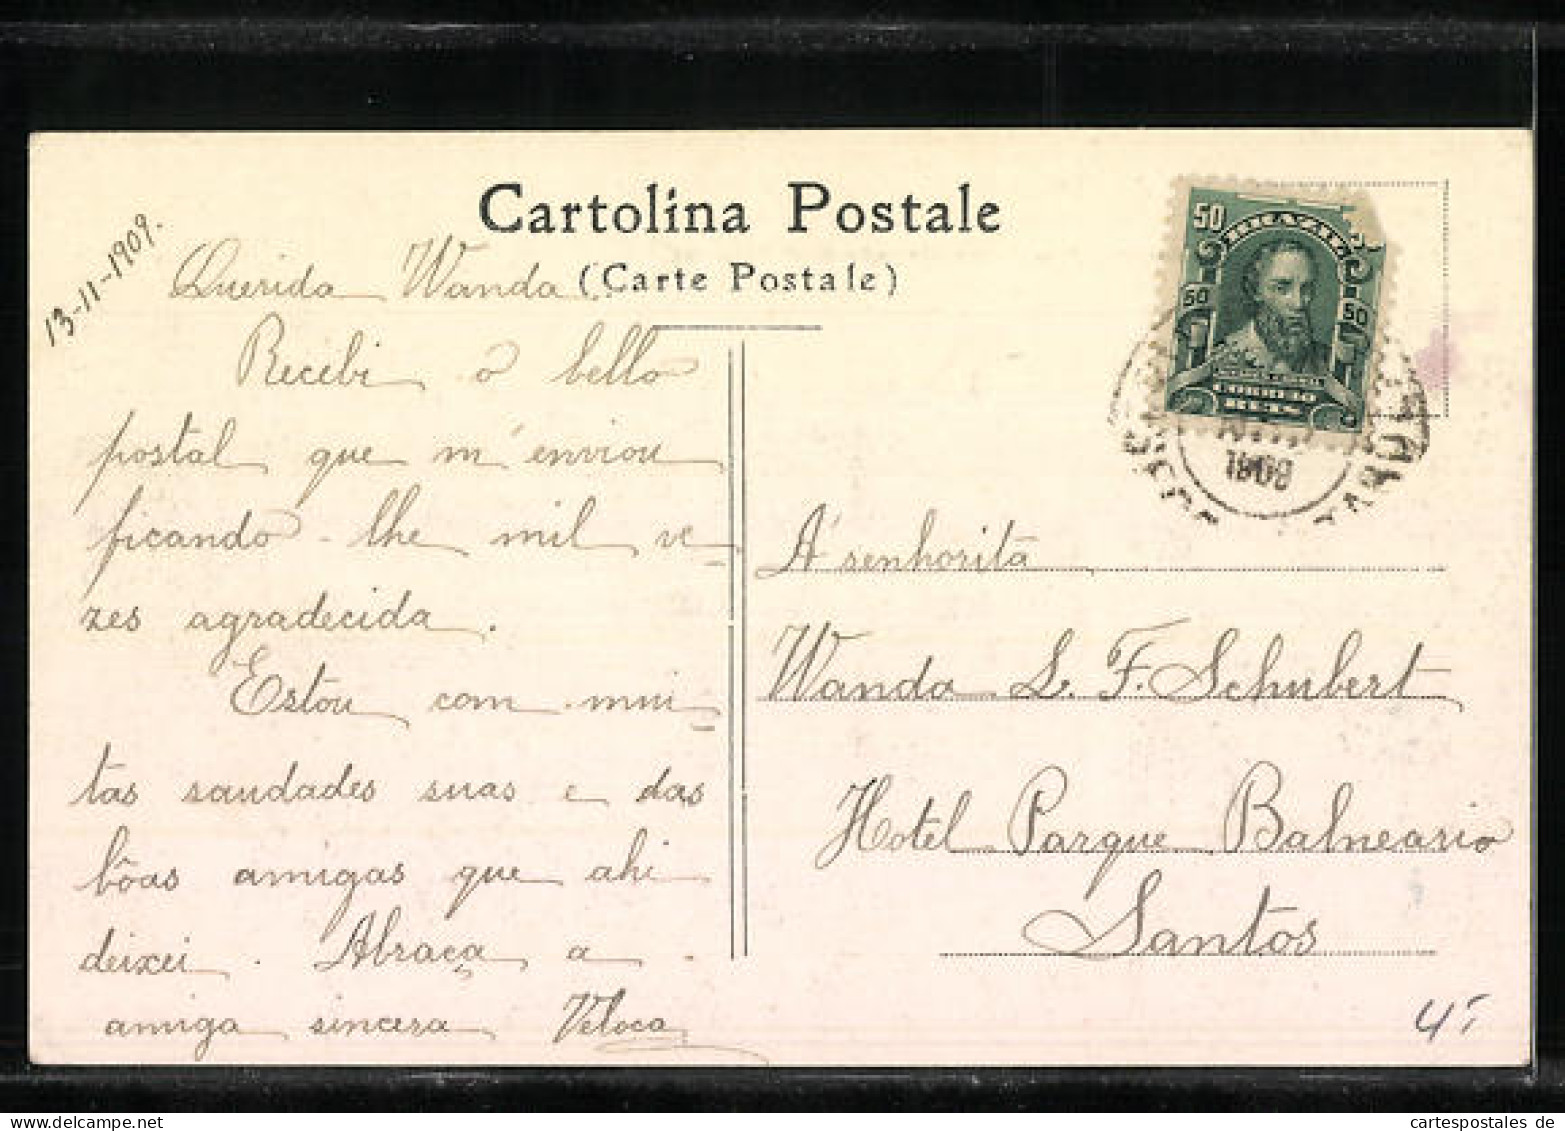 Cartolina Postale
(Carte Postale)
13-11-1909.
Querida Wanda
Recebi o bello
postal que m'enviou
ficando-lhe mil ve-
zes agradecida.
Estou com mui
tas saudades suas e das
bôas amigas que ahi
deixei. Abraça a
amiga sincera
50
BRAZIL
50 50
CORREIO
REIS
1909
Á senhorita
Wanda L. F. Schubert
Hotel Parque Balneario
Santos
cartespostales de